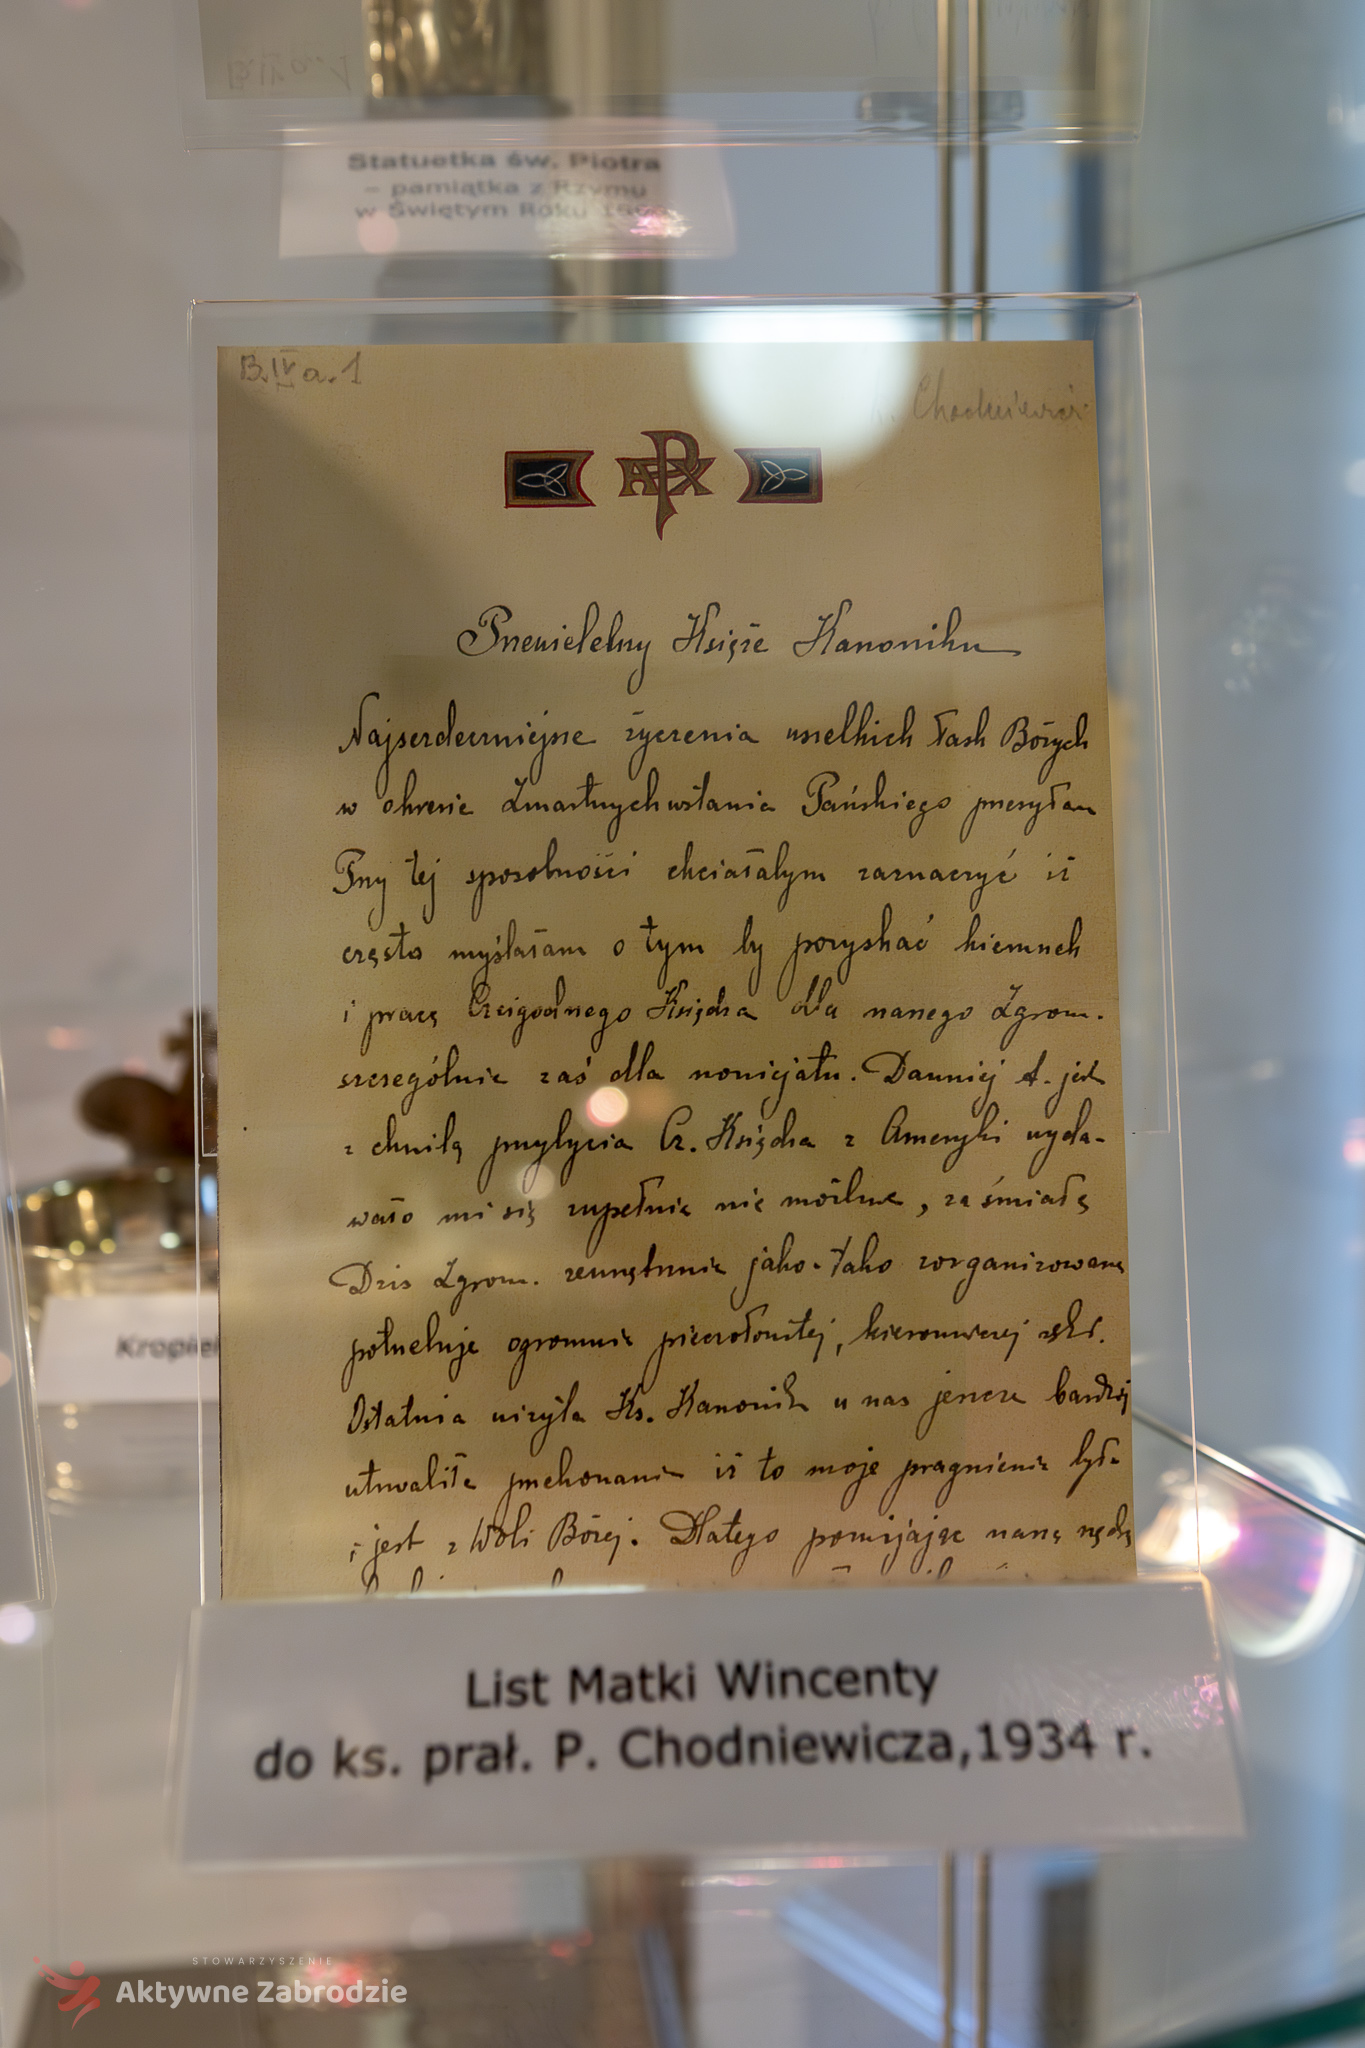 Statuetka św. Piotra
– pamiątka z Rzymu
w Świętym Roku
B.IV a.1
Chodniewicz
APX
Przewielebny Księże Kanoniku
Najserdeczniejsze życzenia wszelkich łask Bożych
w okresie Zmartwychwstania Pańskiego przesyłam
Przy tej sposobności chciałabym zaznaczyć iż
często myślałam o tym by pozyskać kierunek
i pracę Czcigodnego Księdza dla naszego Zgrom.
szczególnie zaś dla nowicjatu. Dawniej t. jest
z chwilą przybycia Cz. Księdza z Ameryki wyda-
wało mi się zupełnie nie możliwe, za śmiałe
Dzis Zgrom. zewnętrznie jako-tako zorganizowane
potrzebuje ogromnie pieczołowitej, kierowniczej ręki.
Ostatnia wizyta Ks. Kanonika u nas jeszcze bardziej
utrwaliła przekonanie iż to moje pragnienie było
i jest z Woli Bożej. Dlatego pomijając naszą nędzę
Kropiel
List Matki Wincenty
do ks. prał. P. Chodniewicza,1934 r.
STOWARZYSZENIE
Aktywne Zabrodzie